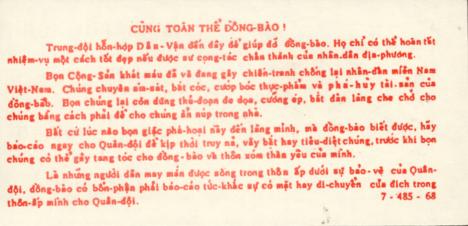 CÙNG TOÀN THỂ ĐỒNG-BÀO !
Trung-đội hỗn-hợp Dân-Vận đến đây để giúp đỡ đồng-bào. Họ chỉ có thể hoàn tất
nhiệm-vụ một cách tốt đẹp nếu được sự cọng-tác chân thành của nhân-dân địa-phương.
Bọn Cộng-Sản khát máu đã và đang gây chiến-tranh chống lại nhân-dân miền Nam
Việt-Nam. Chúng chuyên ám-sát, bắt cóc, cướp bóc thực-phẩm và phá-hủy tài-sản của
đồng-bào. Bọn chúng lại còn dùng thủ-đoạn đe dọa, cưỡng ép, bắt dân làng che chở cho
chúng bằng cách phải để cho chúng ẩn núp trong nhà.
Bất cứ lúc nào bọn giặc phá-hoại này đến làng mình, mà đồng-bào biết được, hãy
báo-cáo ngay cho Quân-đội để kịp thời truy nã, vây bắt hay tiêu-diệt chúng, trước khi bọn
chúng có thể gây tang tóc cho đồng-bào và thôn xóm thân yêu của mình.
Là những người dân may mắn được sống trong thôn ấp dưới sự bảo-vệ của Quân-
đội, đồng-bào có bổn-phận phải báo-cáo tức-khắc sự có mặt hay di-chuyển của địch trong
thôn-ấp mình cho Quân-đội.
7 - 485 - 68